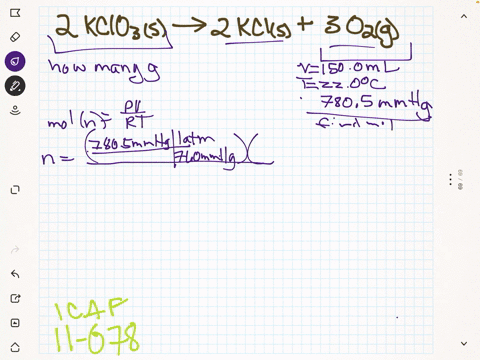 2 KClO3(s) → 2 KCl(s) + 3 O2(g)
how many g
V=150.0mL
T=22.0°C
780.5mmHg
find mol
mol(n)= PV/RT
n= (780.5mmHg | 1atm / 760mmHg)(
ICAF
11-078